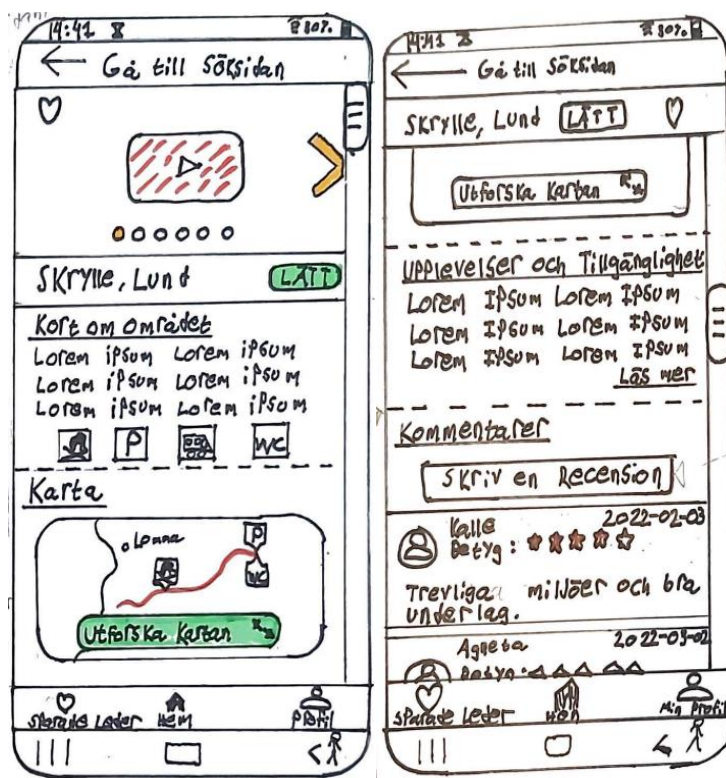 14:41 80%
Gå till Söksidan
Skrylle, Lund LÄTT
Kort om området
Lorem ipsum Lorem ipsum
Lorem ipsum Lorem ipsum
Lorem ipsum Lorem ipsum
P WC
Karta
Lomma
P
WC
Utforska Kartan
Sparade Leder Hem Profil
14:41 80%
Gå till Söksidan
Skrylle, Lund LÄTT
Utforska Kartan
Upplevelser och Tillgänglighet
Lorem Ipsum Lorem Ipsum
Lorem Ipsum Lorem Ipsum
Lorem Ipsum Lorem Ipsum
Läs mer
Kommentarer
Skriv en Recension
Kalle 2022-02-03
Betyg:
Trevliga miljöer och bra
underlag.
Agneta
Betyg:
Sparade Leder Min Profil